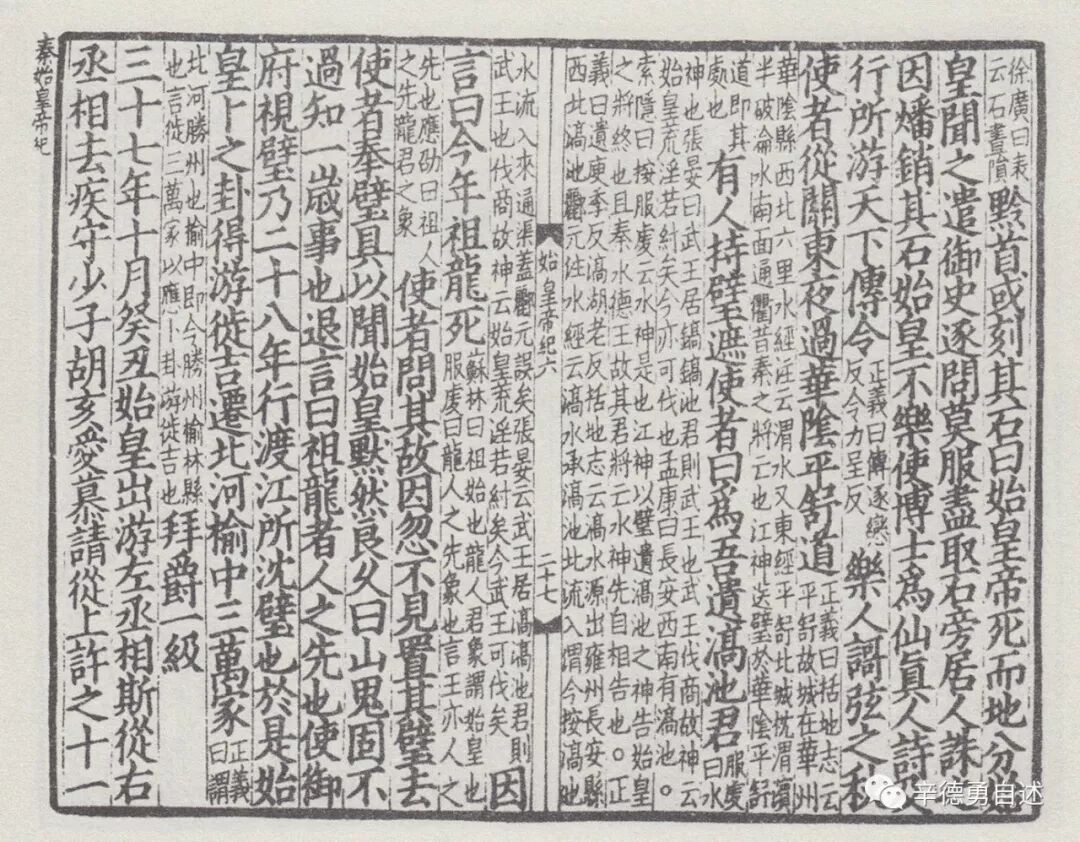 徐廣曰表
云石晝隕
黔首或刻其石曰始皇帝死而地分始
皇聞之遣御史逐問莫服盡取石旁居人誅之
因燔銷其石始皇不樂使博士爲仙眞人詩及
行所游天下傳令
正義曰傳逐戀
反令力呈反
樂人謌弦之秋
使者從關東夜過華陰平舒道
正義曰括地志云
平舒故城在華州
華陰縣西北六里水經注云渭水又東經平舒北城枕渭濱
半破淪水南面通衢昔秦之將亡也江神送璧於華陰平舒
道即其
處也
有人持璧遮使者曰爲吾遺滈池君
服虔
曰水
神也張晏曰武王居鎬鎬池君則武王也武王伐商故神云
始皇荒淫若紂矣今亦可伐也孟康曰長安西南有滈池。
索隱曰按服虔云水神是也江神以璧遺滈池之神告始皇
之將終也且秦水德王故其君將亡水神先自相告也。正
義曰遺庾季反滈湖老反括地志云滈水源出雍州長安縣
西北滈池酈元注水經云滈水承滈池北流入渭今按滈池
始皇帝紀六
二十七
水流入來通渠蓋酈元誤矣張晏云武王居滈滈池君則
武王也伐商故神云始皇荒淫若紂矣今武王可伐矣
因
言曰今年祖龍死
蘇林曰祖始也龍人君象謂始皇也
服虔曰龍人之先象也言王亦人之
先也應劭曰祖人
之先龍君之象
使者問其故因忽不見置其璧去
使者奉璧具以聞始皇默然良久曰山鬼固不
過知一歲事也退言曰祖龍者人之先也使御
府視璧乃二十八年行渡江所沈璧也於是始
皇卜之卦得游徙吉遷北河榆中三萬家
正義
曰謂
北河勝州也榆中即今勝州榆林縣
也言徙三萬家以應卜卦游徙吉也
拜爵一級
三十七年十月癸丑始皇出游左丞相斯從右
丞相去疾守少子胡亥愛慕請從上許之十一
秦始皇帝紀
辛德勇自述